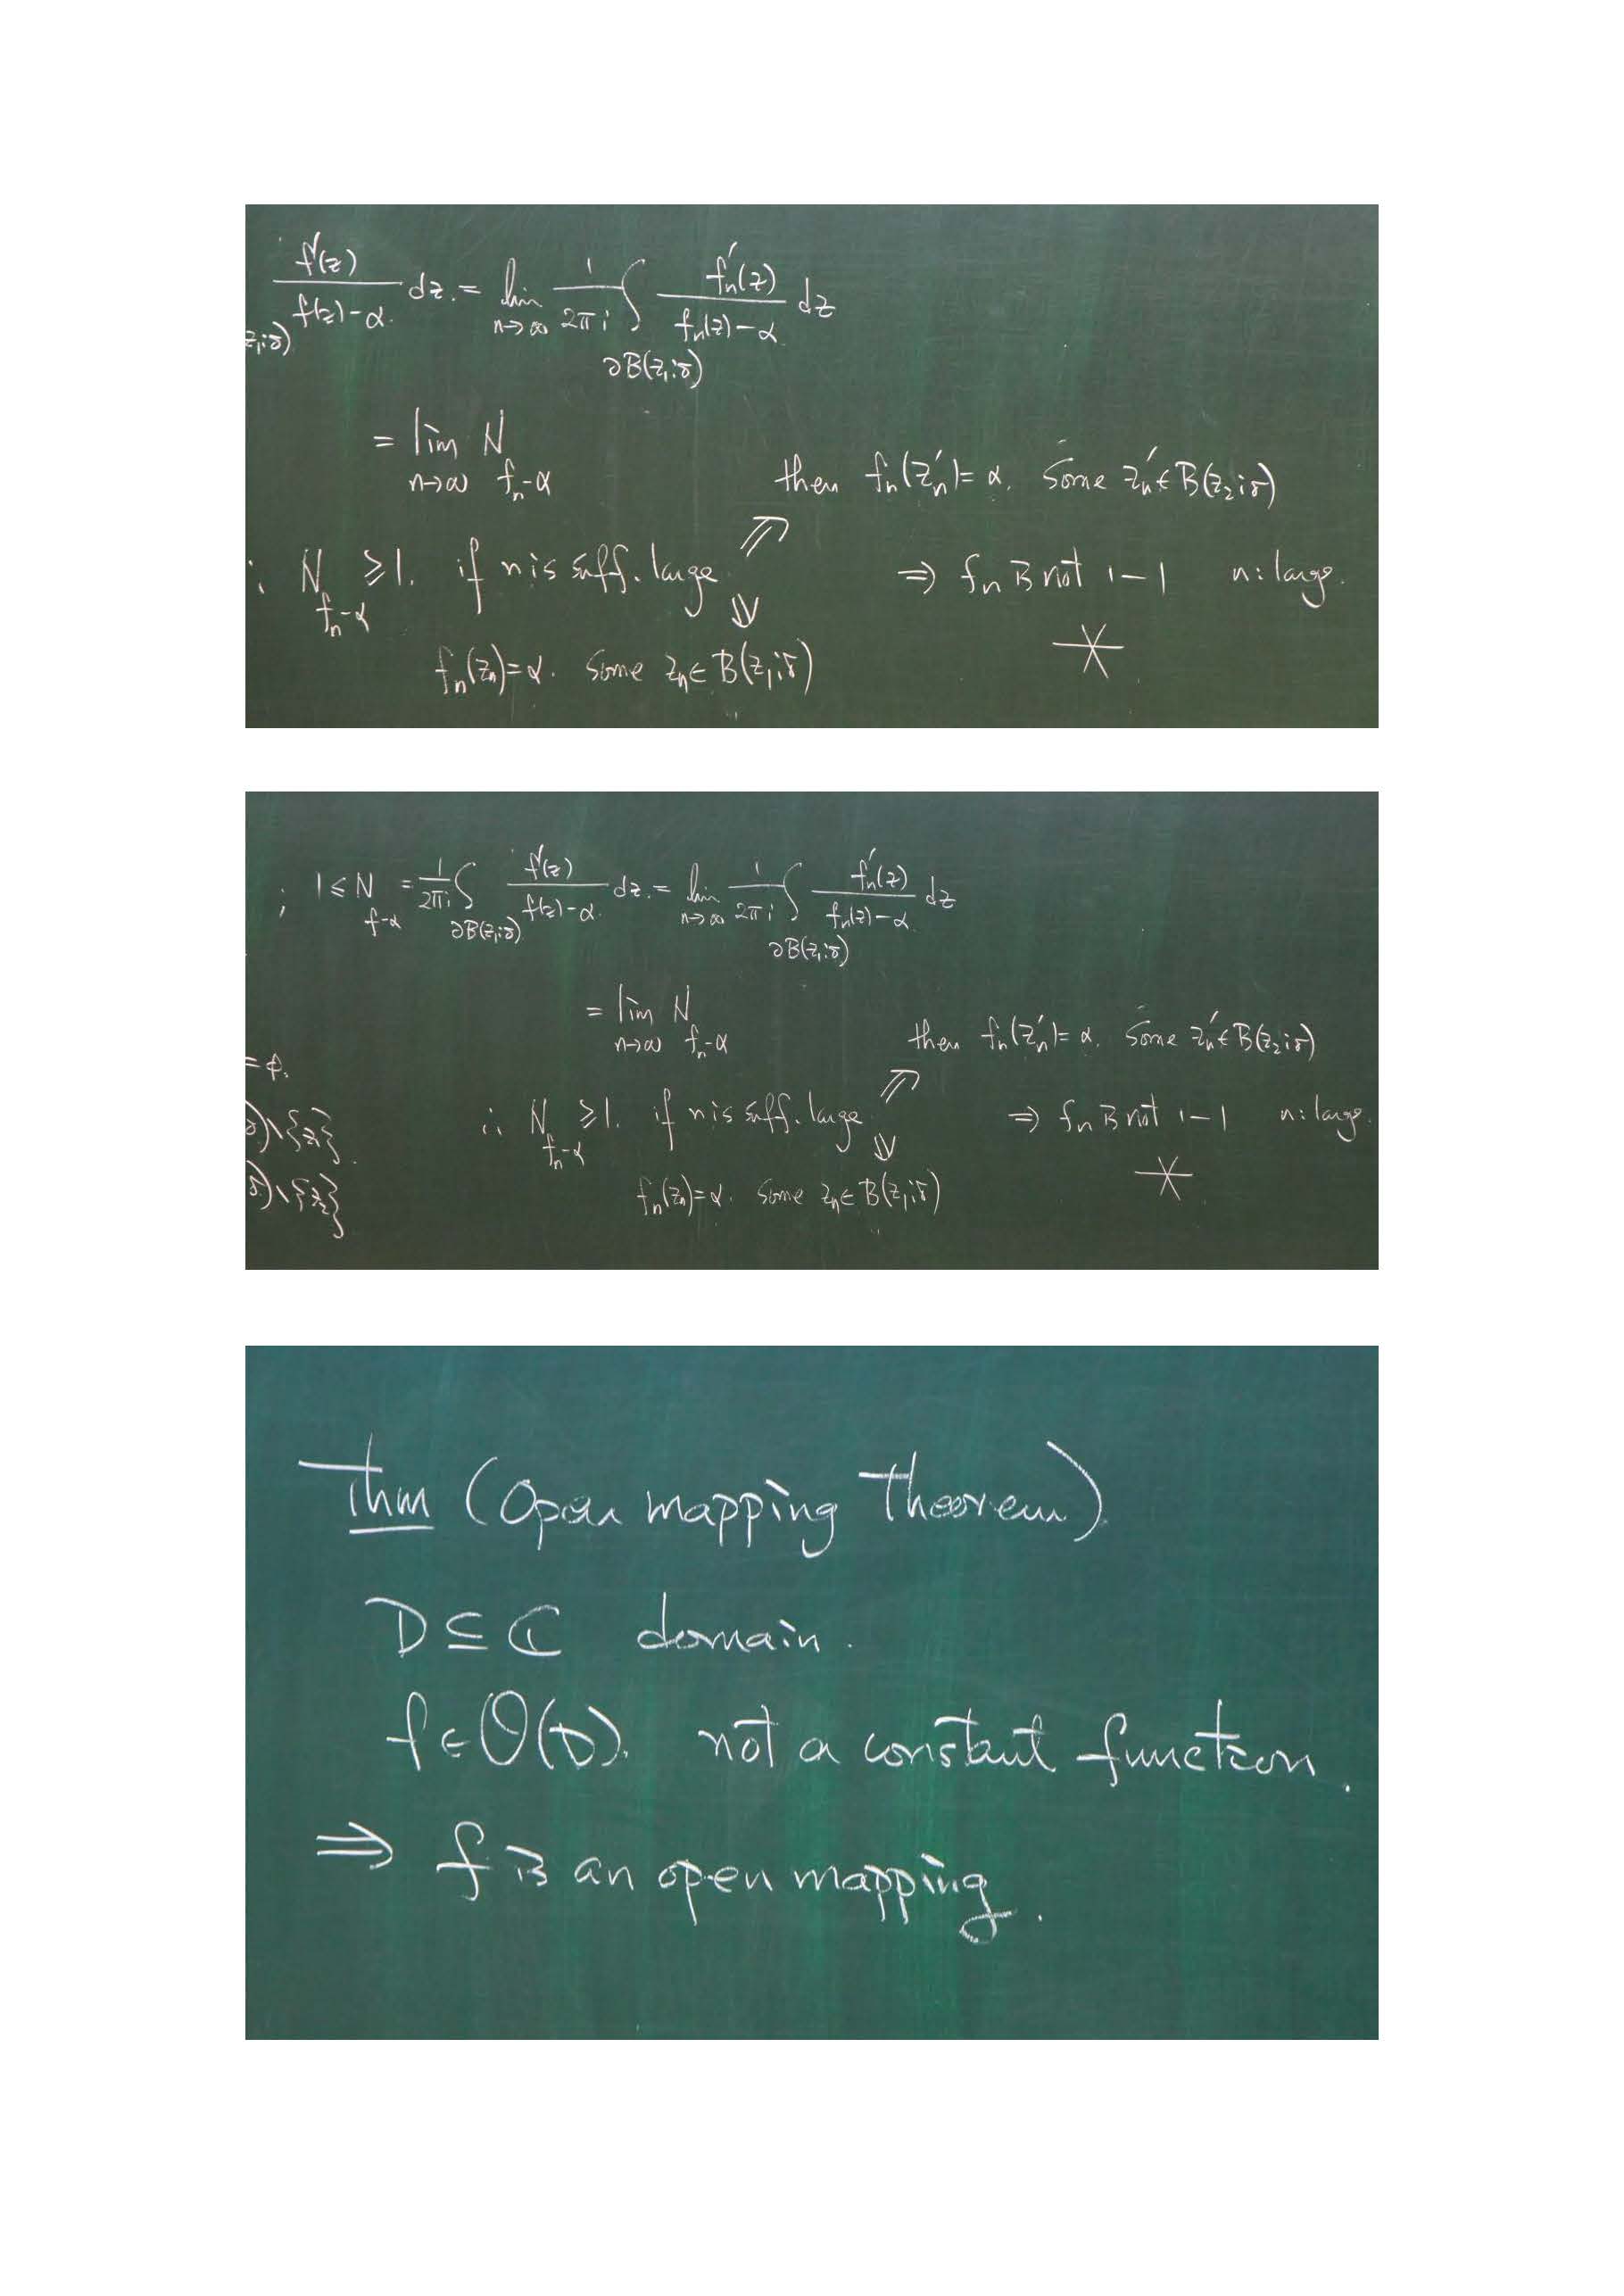 f'(z)
/ f(z)-α. dz. = lim n→∞ 1/2πi ∫ ∂B(z₁;δ) f'ₙ(z)/fₙ(z)-α dz
z₁;δ)
= lim n→∞ N fₙ-α
then fₙ(z'ₙ)=α. Some z'ₙ∈B(z₂;δ)
∴ N fₙ-α ≥1. if n is suff. large. ⇒ fₙ is not 1-1 n: large.
fₙ(zₙ)=α. Some zₙ∈B(z₁;δ)
; 1≤N f-α = 1/2πi ∫ ∂B(z₁;δ) f'(z)/f(z)-α. dz. = lim n→∞ 1/2πi ∫ ∂B(z₁;δ) f'ₙ(z)/fₙ(z)-α. dz
= lim n→∞ N fₙ-α
then fₙ(z'ₙ)=α. Some z'ₙ∈B(z₂;δ)
=φ.
δ)\{z₁}.
∴ N fₙ-α ≥1. if n is suff. large. ⇒ fₙ is not 1-1 n: large.
δ)\{z₂}
fₙ(zₙ)=α. Some zₙ∈B(z₁;δ)
Thm (Open mapping Theorem).
D⊆ℂ domain.
f∈O(D). not a constant function.
⇒ f is an open mapping.